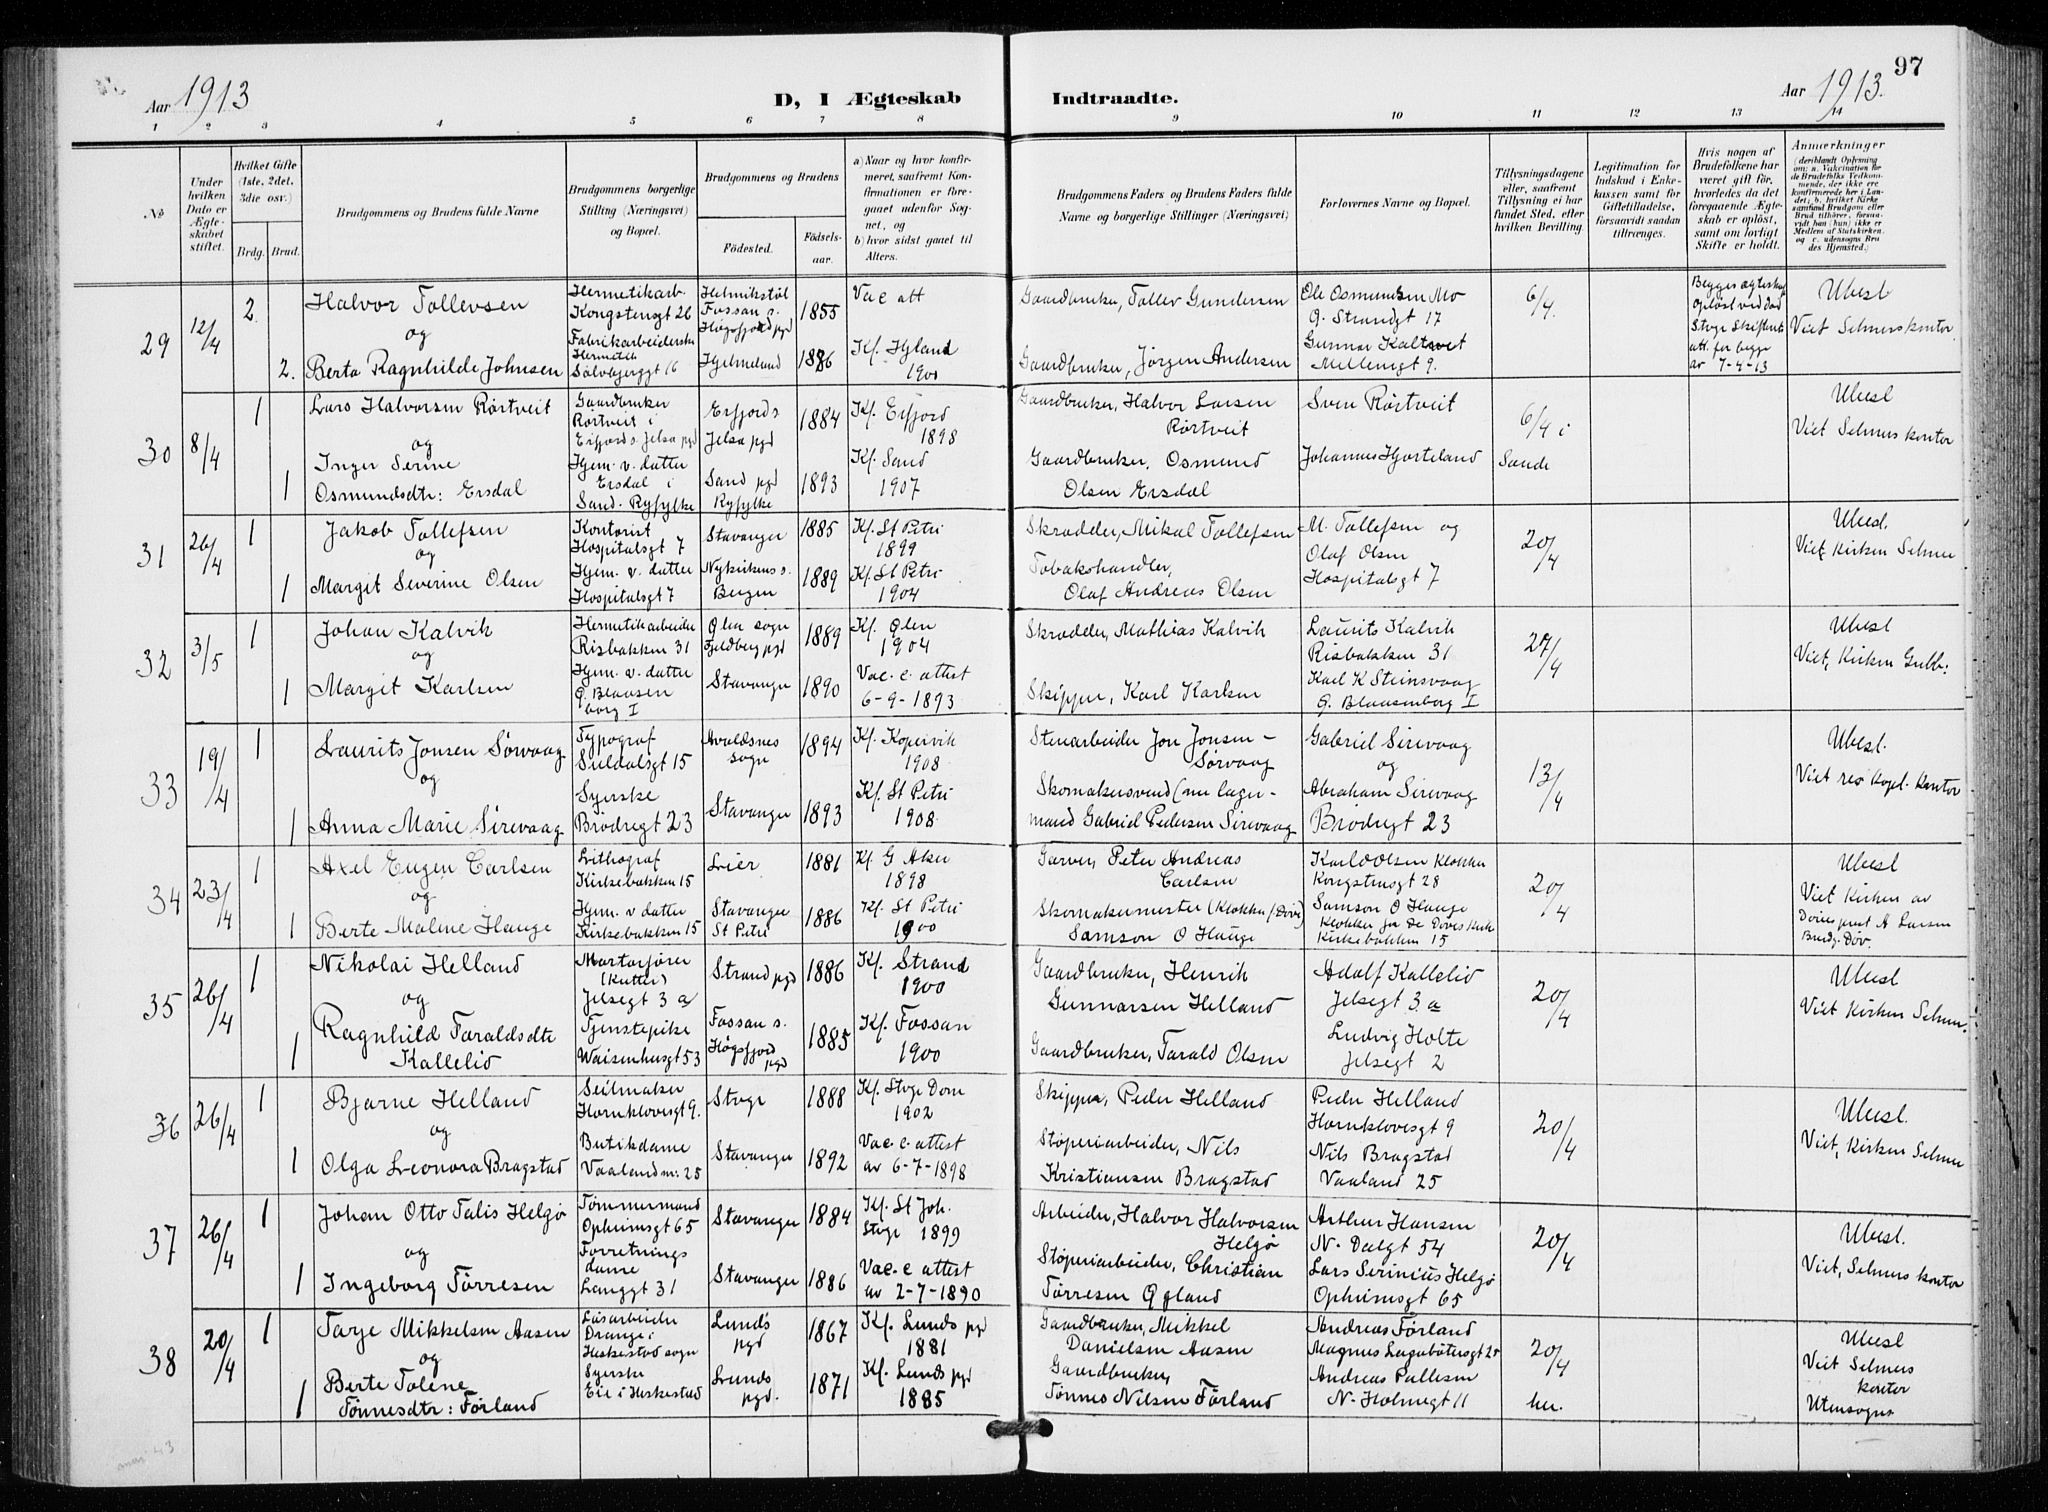 97
Aar 1913
D, I Ægteskab
Indtraadte.
Aar 1913.
1 2 3 4 5 6 7 8 9 10 11 12 13 14
No
Under hvilken Dato er Ægteskabet stiftet.
Hvilket Gifte (1ste, 2det, 3die osv.)
Brdg. Brud.
Brudgommens og Brudens fulde Navne
Brudgommens borgerlige Stilling (Næringsvei) og Bopæl.
Brudgommens og Brudens
Fødested.
Fødselsaar.
a) Naar og hvor konfirmeret, saafremt Konfirmationen er foregaaet udenfor Sognet, og
b) hvor sidst gaaet til Alters.
Brudgommens Faders og Brudens Faders fulde Navne og borgerlige Stillinger (Næringsvei)
Forlovernes Navne og Bopæl.
Tillysningsdagene eller, saafremt Tillysning ei har fundet Sted, efter hvilken Bevilling.
Legitimation for Indskud i Enkekassen samt for Giftetilladelse, forsaavidt saadan tiltrænges.
Hvis nogen af Brudefolkene har været gift før, hvorledes da det foregaaende Ægteskab er opløst, samt om lovligt Skifte er holdt.
Anmærkninger
29
12/4
2
Halvor Tollevsen
og
2. Berta Ragnhilde Johnsen
Hermetikarb.
Kongstensgt 26
Fabrikarbeiderske
Hermetik
Sølvbjerggt 16
Helmikstøl
Fossan s.
Høgsfjord pgd
Hjelmeland
1855
1886
Vac att
Kf. Hjland
1900
Gaardbruker, Tollev Gundersen
Gaardbruker, Jörgen Andersen
Ole Osmundsen Mo
Ø. Strandgt 17
Gunnar Kaltveit
Møllenigt 9.
6/4.
Begges ægteskab
opløst ved død
Stvgr Skifteret
att. for begge
av 7-4-13
Ubesl
Viet Selmers kontor
30
8/4
1
Lars Halvorsen Rørtveit
og
Inger Serine
1 Osmundsdtr: Ersdal
Gaardbruker
Rørtveit i
Erfjord s. Jelsa pgd
Hjem. v. datter
Ersdal i
Sand. Ryfylke
Erfjords
Jelsa pgd
Sand pgd
Ryfylke
1884
1893
Kf. Erfjord
1898
Kf. Sand
1907
Gaardbruker, Halvor Larsen
Rørtveit
Gaardbruker, Osmund
Olsen Ersdal
Sven Rørtveit
Johannes Hjorteland
6/4 i
Sande
Ubesl
Viet Selmers kontor
31
26/4
1
Jakob Tollefsen
og
1 Margit Severine Olsen
Kontorist
Hospitalsgt 7
Hjem. v. datter
Hospitalsgt 7
Stavanger
Nykirkens s.
Bergen
1885
1889
Kf. St Petri
1899
Kf. St Petri
1904
Skrædder, Mikal Tollefsen
Tobakshandler,
Olaf Andreas Olsen
M. Tollefsen og
Olaf Olsen
Hospitalsgt 7
20/4
Ubesl.
Viet Kirken Selmer
32
3/5
1
Johan Kalvik
og
1 Margit Karlsen
Hermetikarbeider
Risbakken 31
Hjem. v. datter
Ø. Blaasen
borg I
Ølen sogn
Fjeldberg pgd
Stavanger
1889
1890
Kf. Ølen
1904
Vac. c. attest
6-9-1893
Skrædder, Mathias Kalvik
Skipper, Karl Karlsen
Laurits Kalvik
Risbakken 31
Karl K Steinsvaag
Ø. Blaasenborg I
27/4
Ubesl
Viet, Kirken Gubb.
33
19/4
1
Laurits Jonsen Sørvaag
og
1 Anna Marie Sirevaag
Typograf
Suldalsgt 15
Syerske
Brødregt 23
Avaldsnes
sogn
Stavanger
1894
1893
Kf. Kopervik
1908
Kf. St Petri
1908.
Stenarbeider Jon Jonsen -
Sørvaag
Skomakersvend (nu lager -
mand Gabriel Pedersen Sirevaag
Gabriel Sirevaag
og
Abraham Sirevaag
Brødregt 23
13/4
Ubesl.
Viet res kapel. kontor
34
23/4
1
Axel Eugen Carlsen
og
1 Berte Malene Hauge
Lithograf
Kirkebakken 15
Hjem. v datter
Kirkebakken 15
Lier
Stavanger
St Petri
1881
1886
Kf. G Aker
1898
Kf. St Petri
1900
Garver, Peter Andreas
Carlsen
Skomakermester (Klokker f Døve)
Samson O Hauge
Karl O Olsen Klokker
Kongstensgt 28
Samson O Hauge
Klokker for De Døves Kirk
Kirkebakken 15
20/4
Ubesl
Viet Kirken av
Døvesprest A Larsen
Brudg. Døv.
35
26/4
1
Nikolai Helland
og
Ragnhild Taraldsdtr
1 Kallelid
Motorfører
(Kutter)
Jelsegt 3 a
Tjenestepike
Waisenhusgt 53
Strand pgd
Fossan s.
Høgsfjord
pgd
1886
1885
Kf. Strand
1900
Kf. Fossan
1900
Gaardbruker, Henrik
Gunnarsen Helland
Gaardbruker, Tarald Olsen
Adolf Kallelid
Jelsegt 3 a
Ludvig Holte
Jelsegt 2
20/4
Ubesl
Viet Kirken Selmer.
36
26/4
1
Bjarne Helland
og
1 Olga Leonora Bragstad
Seilmaker
Hornklovesgt 9.
Butikdame
Vaaland nr. 25
Stvgr
Stavanger
1888
1892
Kf. Stvgr Dom
1902
Vac. c attest
av 6-7-1898
Skipper, Peder Helland
Støperiarbeider, Nils
Kristiansen Bragstad
Peder Helland
Hornklovesgt 9
Nils Bragstad
Vaaland 25
20/4
Ubesl.
Viet, Kirken Selmer
37
26/4
1
Johan Otto Talis Helgø
og
1 Ingeborg Tørresen
Tømmermand
Opheimsgt 65
Forretnings
dame
Langgt 31
Stavanger
Stavanger
1884
1886
Kf. St Joh.
Stvgr 1899
Vac. c attest
av 2-7-1890
Arbeider, Halvor Halvorsen
Helgø
Støperiarbeider, Christian
Tørresen Øgland
Arthur Hansen
N. Dalgt 54
Lars Serinius Helgø
Opheimsgt 65
20/4
Ubesl.
Viet, Selmers kontor
38
20/4
1
Tarje Mikkelsen Aasen
og
Berte Tolene
1 Tønnesdtr: Førland
Løsarbeider
Drange i
Heskestad sogn
Syerske
Eie i Heskestad
Lunds
pgd
Lunds
pgd.
1867
1871
Kf. Lunds pgd
1881
Kf. Lunds pgd
1885
Gaardbruker, Mikkel
Danielsen Aasen
Gaardbruker,
Tønnes Nilsen Førland
Andreas Førland
Magnus Lagabøtersgt 25
Andreas Pallesen
N. Holmegt 11
20/4
her.
Ubesl
Viet Selmers
kontor
Utensogns